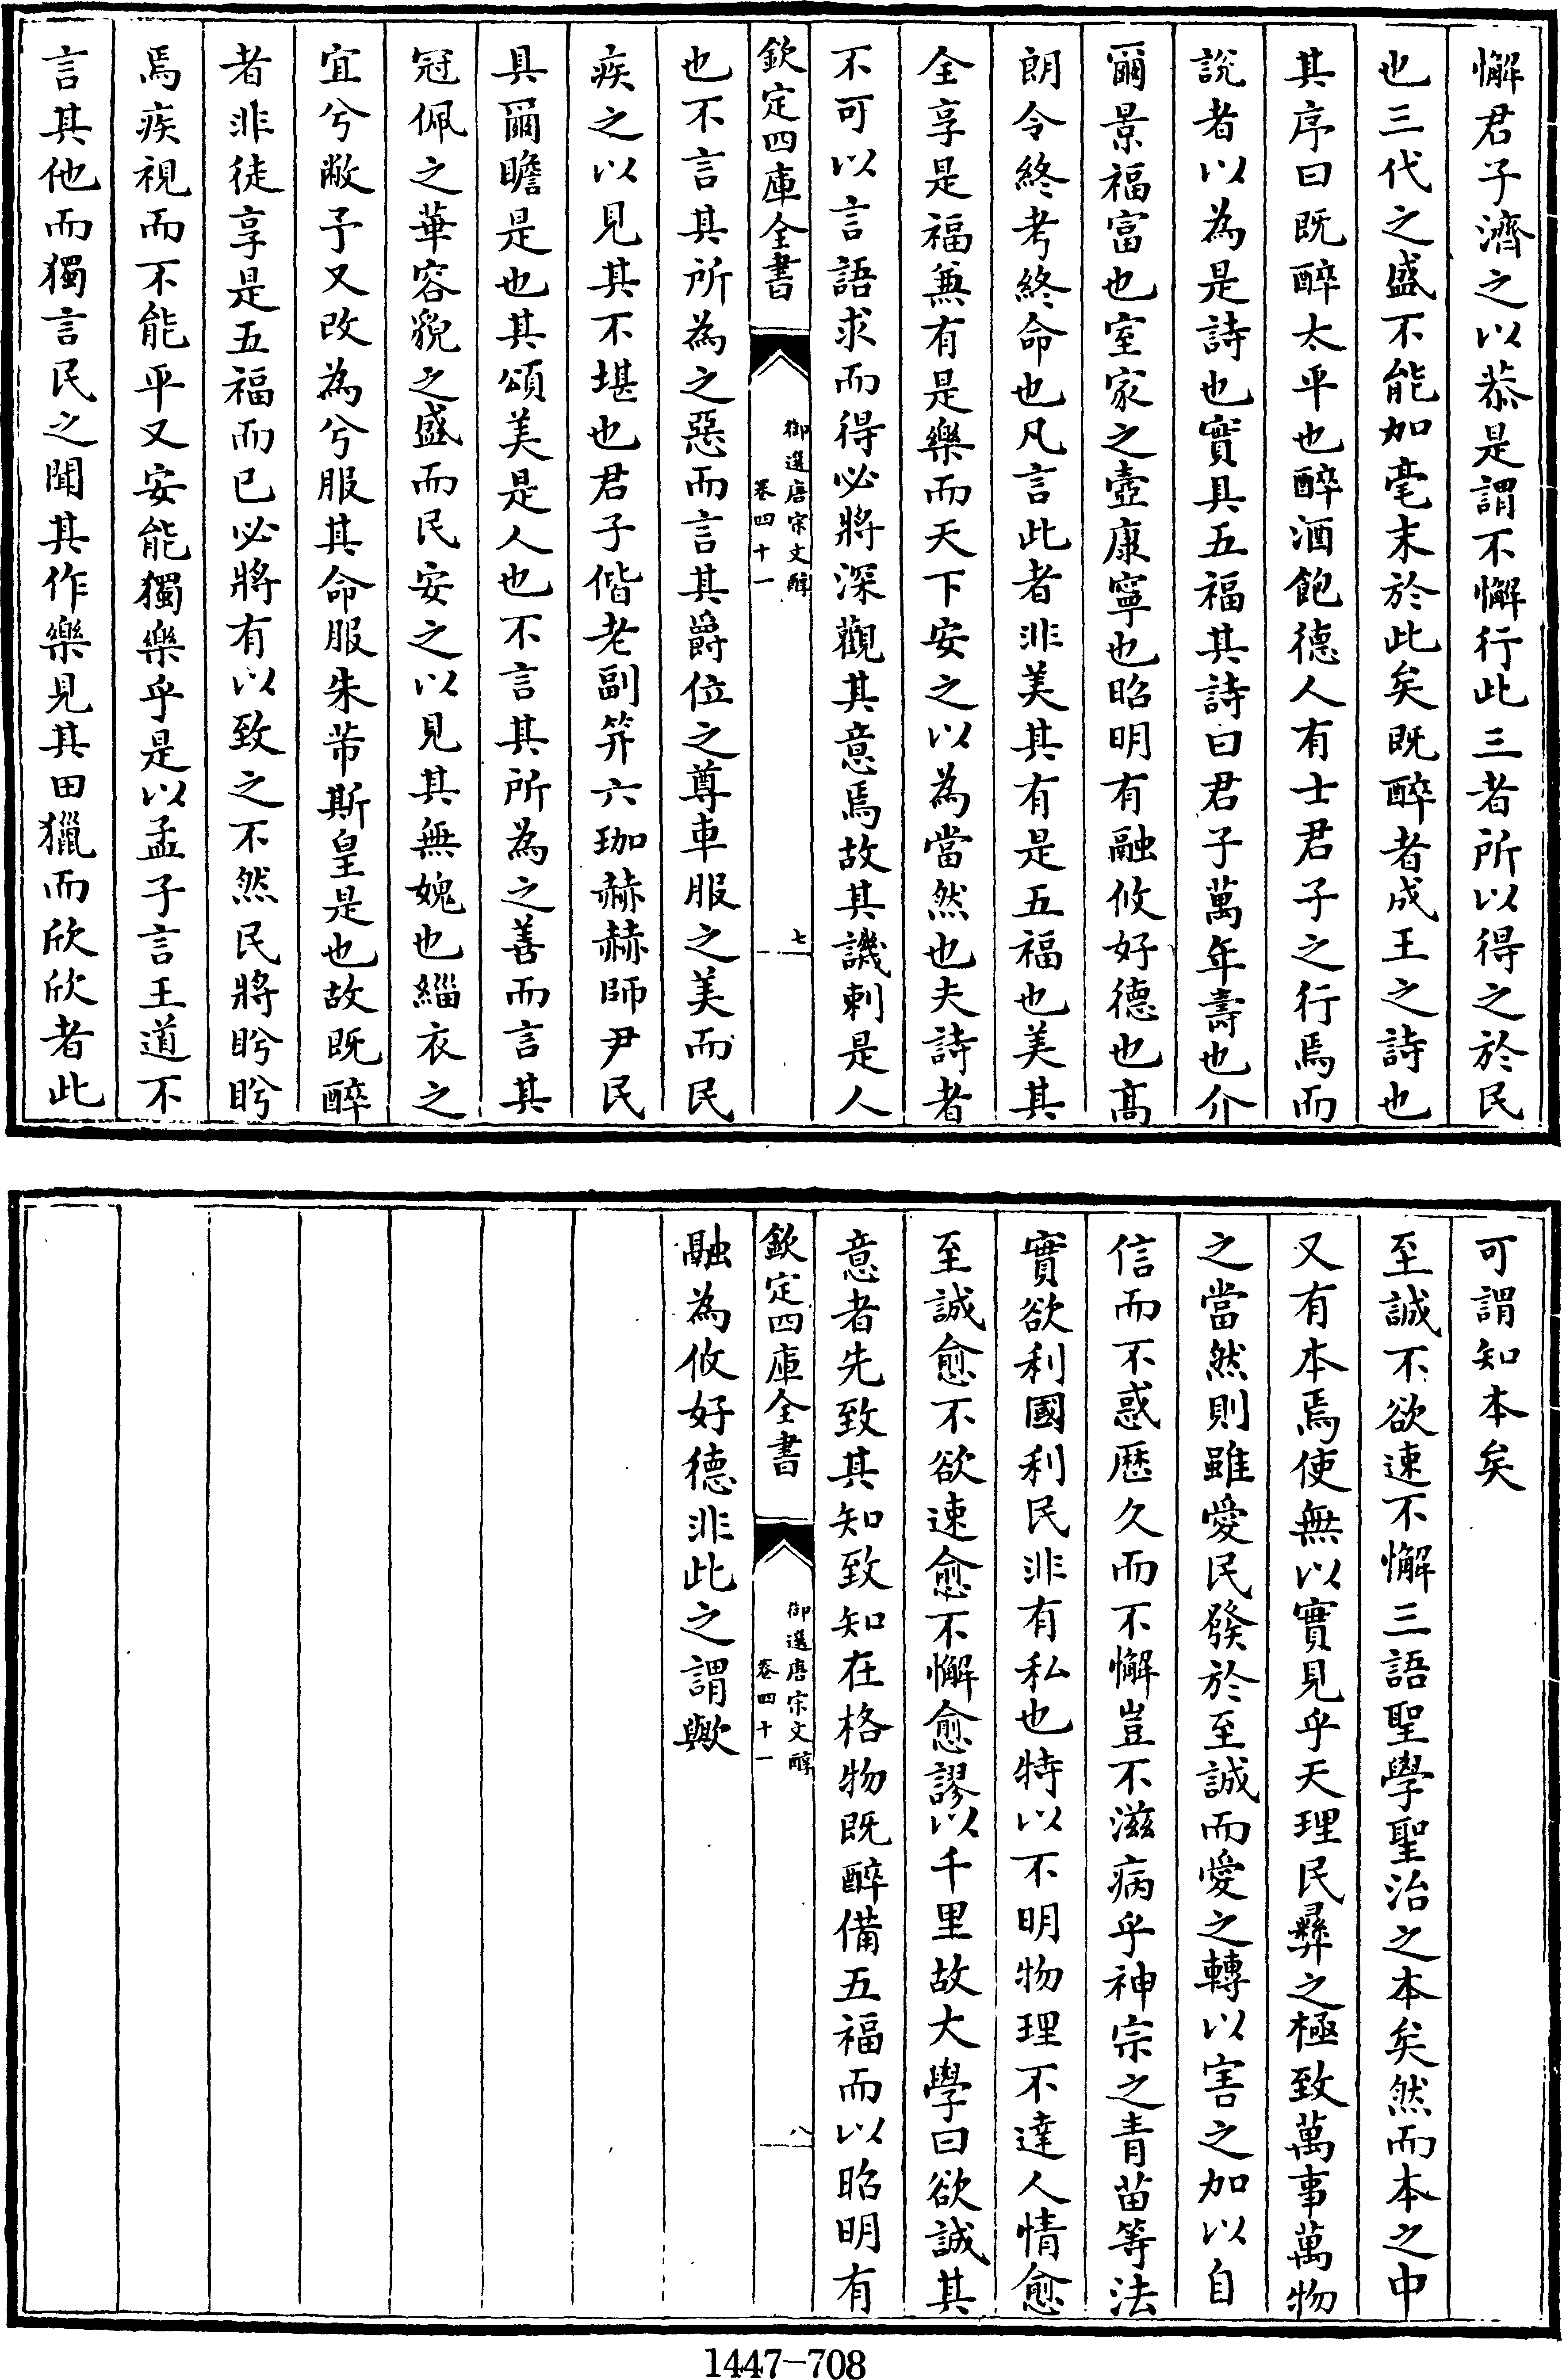 懈君子濟之以恭是謂不懈行此三者所以得之於民
也三代之盛不能加毫末於此矣既醉者成王之詩也
其序曰既醉太平也醉酒飽德人有士君子之行焉而
說者以為是詩也實具五福其詩曰君子萬年壽也介
爾景福富也室家之壼康寧也昭明有融攸好德也高
朗令終考終命也凡言此者非美其有是五福也美其
全享是福兼有是樂而天下安之以為當然也夫詩者
不可以言語求而得必將深觀其意焉故其譏刺是人
欽定四庫全書
御選唐宋文醇
卷四十一
七
也不言其所為之惡而言其爵位之尊車服之美而民
疾之以見其不堪也君子偕老副笄六珈赫赫師尹民
具爾瞻是也其頌美是人也不言其所為之善而言其
冠佩之華容貌之盛而民安之以見其無媿也緇衣之
宜兮敝予又改為兮服其命服朱芾斯皇是也故既醉
者非徒享是五福而已必將有以致之不然民將盻盻
焉疾視而不能平又安能獨樂乎是以孟子言王道不
言其他而獨言民之聞其作樂見其田獵而欣欣者此
可謂知本矣
至誠不欲速不懈三語聖學聖治之本矣然而本之中
又有本焉使無以實見乎天理民彞之極致萬事萬物
之當然則雖愛民發於至誠而愛之轉以害之加以自
信而不惑歷久而不懈豈不滋病乎神宗之青苗等法
實欲利國利民非有私也特以不明物理不達人情愈
至誠愈不欲速愈不懈愈謬以千里故大學曰欲誠其
意者先致其知致知在格物既醉備五福而以昭明有
欽定四庫全書
御選唐宋文醇
卷四十一
八
融為攸好德非此之謂歟
1447-708